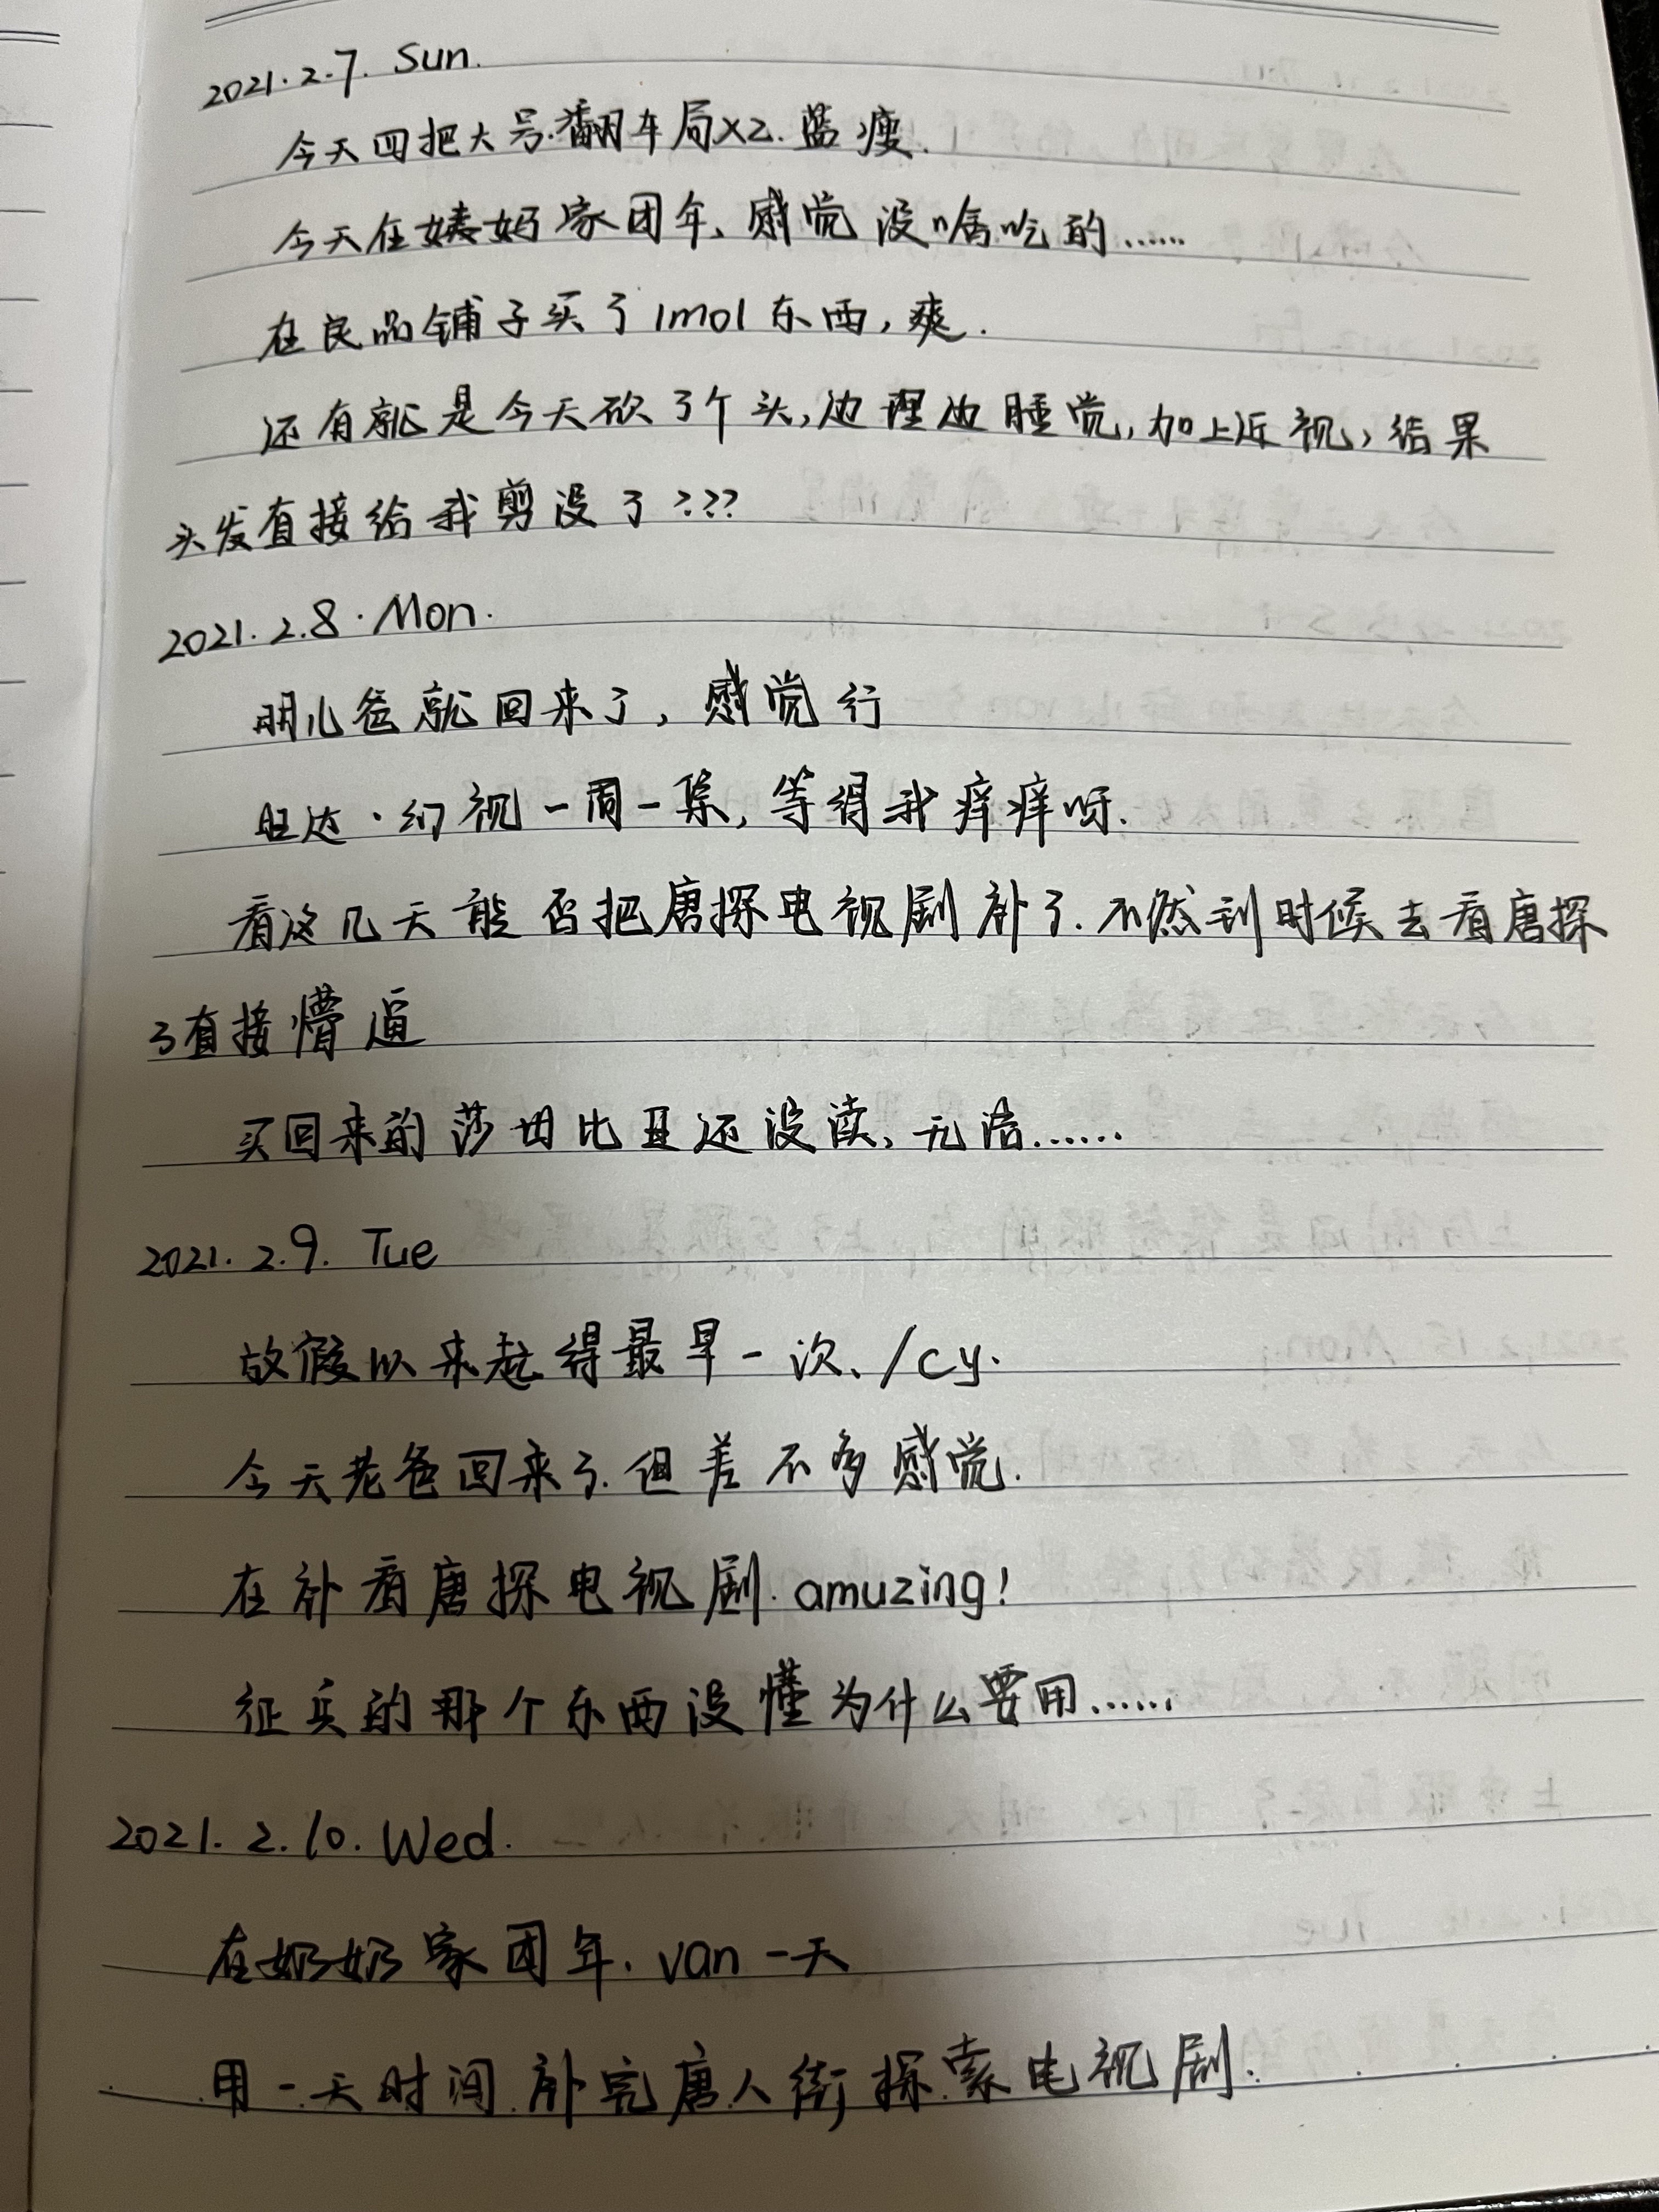 2021.2.7. Sun.
今天四把大号.翻车局x2.蓝瘦.
今天在姨妈家团年、感觉没啥吃的……
在良品铺子买了1mol东西,爽.
还有就是今天砍了个头,边理边睡觉,加上近视,结果
头发直接给我剪没了???
2021.2.8.Mon.
明儿爸就回来了,感觉行
旺达·幻视一周一集,等得我痒痒呀.
看这几天能否把唐探电视剧补了.不然到时候去看唐探
3直接懵逼
买回来的莎士比亚还没读、无语……
2021.2.9. Tue
放假以来起得最早一次、/cy.
今天老爸回来了.但差不多感觉.
在补看唐探电视剧.amuzing!
征兵的那个东西没懂为什么要用……
2021.2.10.Wed.
在奶奶家团年.van一天
用一天时间补完唐人街探索电视剧.